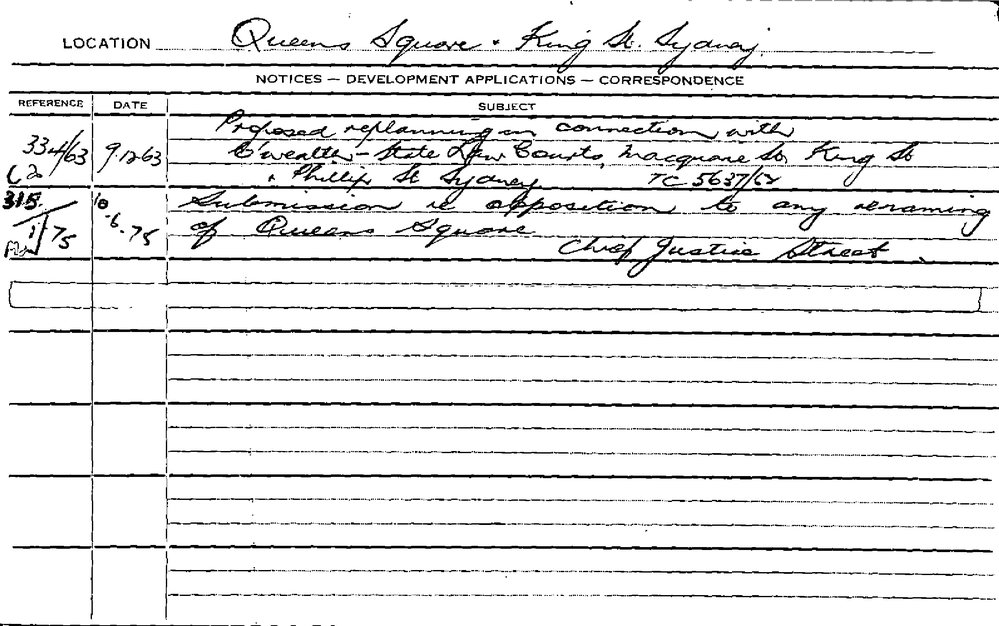 LOCATION Queens Square & King St. Sydney.
NOTICES — DEVELOPMENT APPLICATIONS — CORRESPONDENCE
REFERENCE DATE SUBJECT
Proposed replanning in connection with
334/63 9.12.63 C'wealth-State Law Courts, Macquarie St, King St
C2 & Phillip St Sydney TC 5637/
315 10 Submission re opposition to any renaming
1/75 .6.75 of Queens Square
Chief Justice Street.